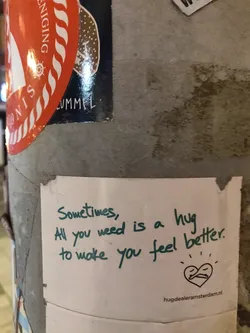 ENIGING
NIS
LUMMEL
Sometimes,
All you need is a hug
to make you feel better.
hugdealeramsterdam.nl